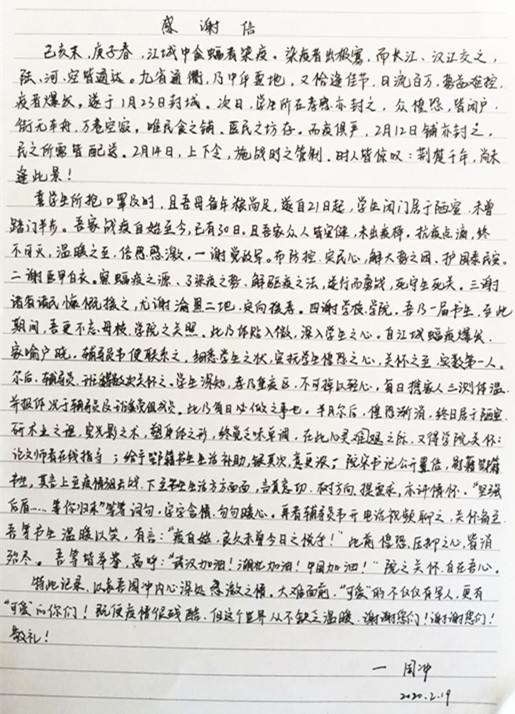 感谢信
己亥末,庚子春,江城中食蝠者染疫。染疫者出报寓,而长江、汉江交之,
陆、河、空皆通达。九省通衢,乃中华要地,又恰逢佳节,日流百万,
疫者爆长。遂于1月23日封城。次日,学生所在孝感亦封之,众惶恐,皆闭户。
街无车舟,万巷空寂,唯民食之铺、医民之坊存。而疫保严,2月12日铺亦封之,
民之所需皆配送。2月14日,上下令,施战时之管制。时人皆惊叹:荆楚千年,尚未
逢此景!
幸学生所抢口罩及时,且吾母备年粮尚足,遂自21日起,学生闭门居于陋室,未曾
踏门半步。吾家战疫自始至今,已有30日,且吾家众人皆安健,未出疫病。抗疫点滴,终
不可灭,温暖之至,倍感感激。一谢党政军。布防控、安民心,解大势之困,护国泰民安。
二谢医甲白衣。察蝠疫之源、了染疫之势、解驱疫之法,逆行而奋战,死守生死关。三谢
诸省诸民慷慨援之,尤谢渝黑二地,定向援孝。四谢学校、学院。吾乃一届书生,在此
期间,吾更不忘母校、学院之关照。此乃体贴入微,深入学生之心。自江城蝠疫爆长,
家喻户晓,辅导员韦便联系之,细悉学生之状,安抚学生惶恐之心,关怀之至,实数第一人。
尔后,辅导员、班级数次关怀之。学生深知,孝乃重疫区,不可掉以轻心,每日携家人三测体温,
并报体况于辅导员及班级党组成员。此乃每日必做之事也。半月尔后,惶恐渐消,终日居于陋室,
研术业之课,赏光影之术,塑身体之形,终觉乏味单调,在此心灵艰难之际,又得学院关怀:
论文师者在线指导;给予鄂籍书生生活补助,银其次,意更深。院宋书记公开置信,慰藉鄂籍
书生,其言上至疫情狙击战,下至书生生活方方面面,言真意切,树方向,提要求,亦谆情怀。“坚强
后盾……等你归来”等等词句,字字含情,句句暖心。再有辅导员韦开电话视频聊之,关怀备至,
吾等书生温暖以笑,有言:“疫自始,良久未曾今日之悦乎!”此前惶恐、压抑之心,皆消
弥尽。吾等皆举拳,高呼:“武汉加油!湖北加油!中国加油!”院之关怀,自在吾心。
特此记录,以表吾周冲内心深处感激之情。大难面前,“可爱”的不仅仅有军人,更有
“可爱”的你们!既便疫情很残酷,但这个世界从不缺乏温暖。谢谢您们!谢谢您们!
敬礼!
一周冲
2020.2.19